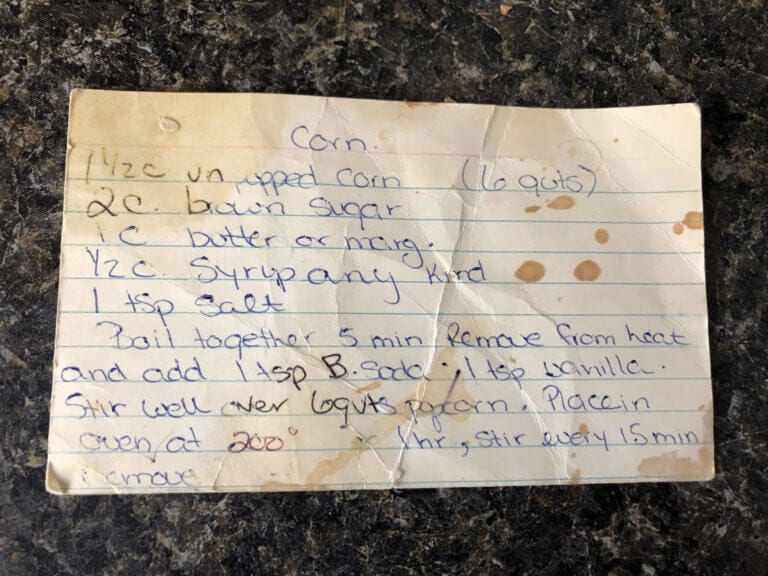 Corn.
1 1/2 C un pped Corn (6 quts)
2 C. brown sugar
1 C butter or marg.
1/2 C. Syrup any kind
1 tsp salt
Boil together 5 min Remove from heat
and add 1 tsp B. Soda, 1 tsp vanilla.
Stir well over 6 quts popcorn. Place in
oven at 200° 1 hr, stir every 15 min
remove